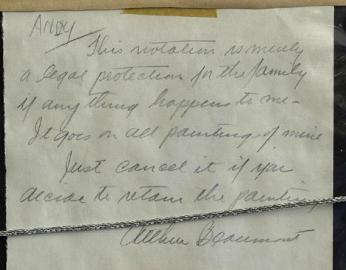 Andy
This notation is merely
a legal protection for the family
if anything happens to me -
It goes on all painting of mine
Just cancel it if you
decide to retain the painting
Arthur Beaumont